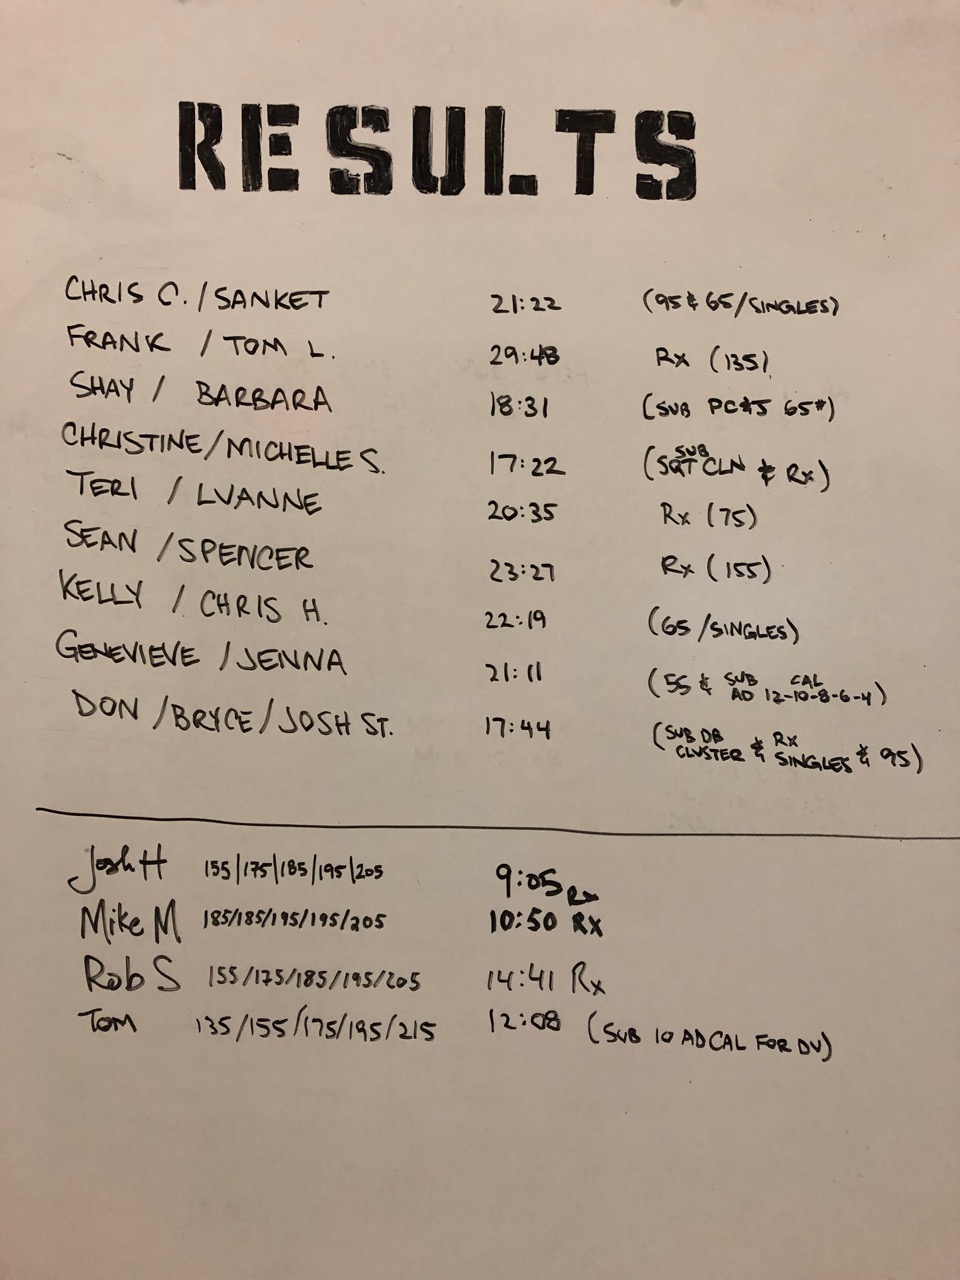 RESULTS
CHRIS C. / SANKET 21:22 (95 & 65/SINGLES)
FRANK / TOM L. 29:48 Rx (135)
SHAY / BARBARA 18:31 (SUB PC&J 65#)
CHRISTINE/MICHELLE S. 17:22 (SUB SQT CLN & Rx)
TERI / LUANNE 20:35 Rx (75)
SEAN / SPENCER 23:27 Rx (155)
KELLY / CHRIS H. 22:19 (65/SINGLES)
GENEVIEVE / JENNA 21:11 (55 & SUB CAL AD 12-10-8-6-4)
DON / BRYCE / JOSH ST. 17:44 (SUB DB CLUSTER & RX SINGLES & 95)
Josh H 155|175|185|195|205 9:05 Rx
Mike M 185/185/195/195/205 10:50 RX
Rob S 155/175/185/195/205 14:41 Rx
TOM 135/155/175/195/215 12:08 (SUB 10 AD CAL FOR DU)